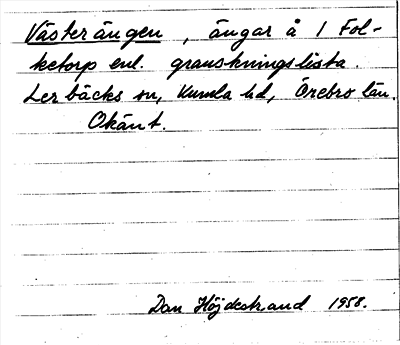 Västerängen, ängar å 1 Fol-
ketorp enl. granskningslista.
Lerbäcks sn, Kumla hd, Örebro län.
Okänt.
Dan Höjdestrand 1958.